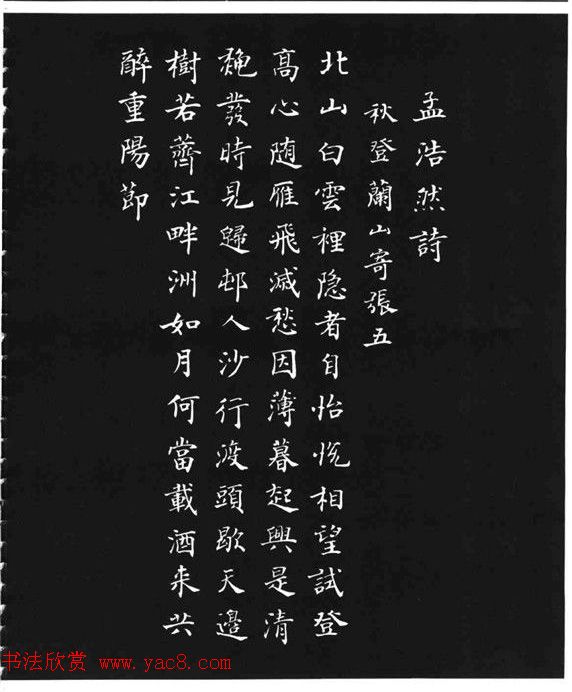 孟浩然詩
秋登蘭山寄張五
北山白雲裡隐者自怡悦相望試登
高心随雁飛滅愁因薄暮起興是清
秋發時見歸邨人沙行渡頭歇天邊
樹若薺江畔洲如月何當載酒来共
醉重陽節
书法欣赏 www.yac8.com